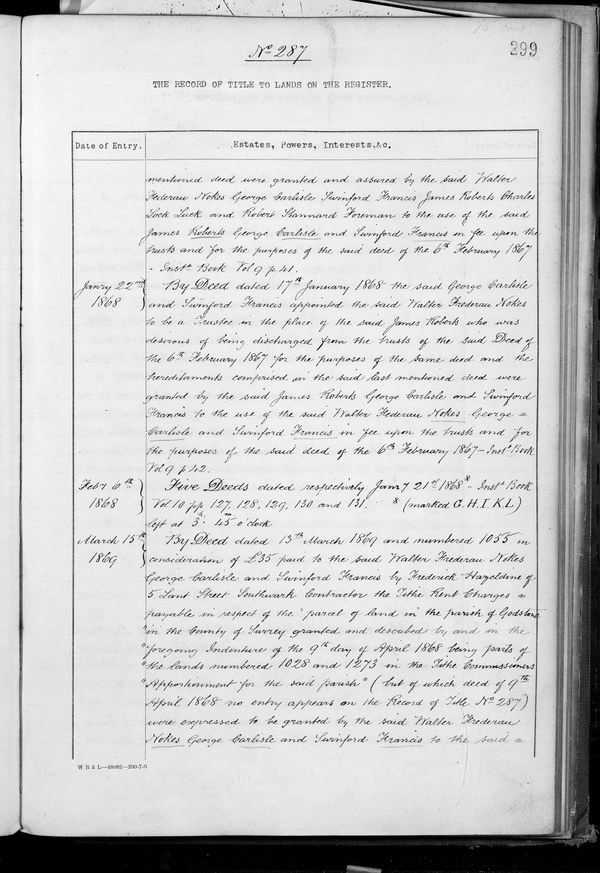 No 287
299
THE RECORD OF TITLE TO LANDS ON THE REGISTER.
Date of Entry.
Estates, Powers, Interests, &c.
mentioned deed were granted and assured by the said Walter
Federau Nokes George Carlisle Swinford Francis James Roberts Charles
Lock Luck and Robert Stannard Foreman to the use of the said
James Roberts George Carlisle and Swinford Francis in fee upon the
trusts and for the purposes of the said deed of the 6th February 1867
- Insts Book Vol 9 p 41.
Janry 22nd 1868
By Deed dated 17th January 1868 the said George Carlisle
and Swinford Francis appointed the said Walter Frederau Nokes
to be a Trustee in the place of the said James Roberts who was
desirous of being discharged from the trusts of the said Deed of
the 6th February 1867 for the purposes of the same deed and the
hereditaments comprised in the said last mentioned deed were
granted by the said James Roberts George Carlisle and Swinford
Francis to the use of the said Walter Federau Nokes George =
Carlisle and Swinford Francis in fee upon the trusts and for
the purposes of the said deed of the 6th February 1867 - Insts Book
Vol 9 p 42.
Feby 6th 1868
Five Deeds dated respectively Jany 21st 1868 x - Insts Book
Vol 10 pp 127, 128, 129, 130 and 131. x (marked G. H. I. K. L)
left at 3h. 45m o'clock
March 15th 1869
By Deed dated 13th March 1869 and numbered 1055 in
consideration of £35 paid to the said Walter Frederau Nokes
George Carlisle and Swinford Francis by Frederick Hazeldine of
5 Lant Street Southwark Contractor the Tithe Rent Charges =
payable in respect of the "parcel of land in the parish of Godstone
"in the County of Surrey granted and described by and in the
"foregoing Indenture of the 9th day of April 1868 being parts of
"the lands numbered 1028 and 1273 in the Tithe Commissioners
"Apportionment for the said parish" (but of which deed of 9th
April 1868 no entry appears on the Record of Title No 287)
were expressed to be granted by the said Walter Frederau
Nokes George Carlisle and Swinford Francis to the said =
W B & L—49882—200-7-6